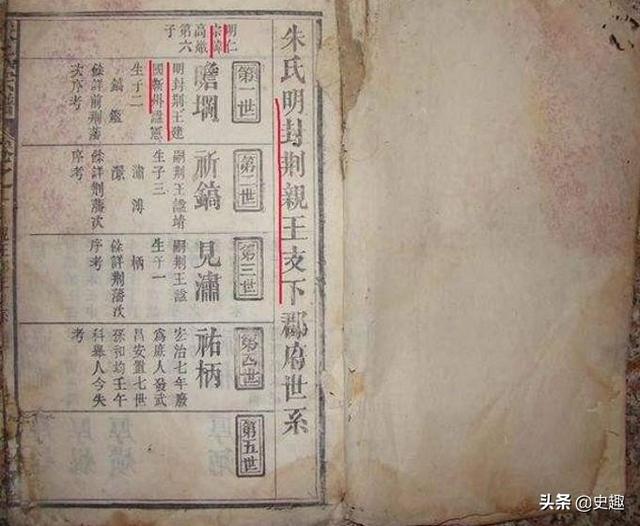 朱氏明封荆親王支下郡府世系
明仁
宗諱
高熾
第六
子
第一世
瞻堈
明封荆王建
國蘄州諡憲
生子二
鎬 鑑
餘詳前荆藩
次序考
第二世
祈鎬
嗣荆王諡靖
生子三
瀟 溥
濛
餘詳荆藩次
序考
第三世
見瀟
嗣荆王諡
生子一
柄
餘詳荆藩次
序考
第四世
祐柄
宏治七年廢
爲庶人發武
昌安置七世
孫和均壬午
科舉人今失
考
第五世
头条 @史趣